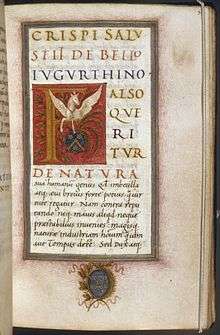 CRISPI SALV
STII DE BELLO
IVGVRTHINO
FALSO
QVE
RI
TVR
DE NATVRA
sua humanū genus imbecilla
atq; aevi brevis forte potius
regatur. Nam contra repu
tando neq; maius aliud neq;
praestabilius invenies: magisq;
naturae industriam
aut tempus Sed Dux atq;